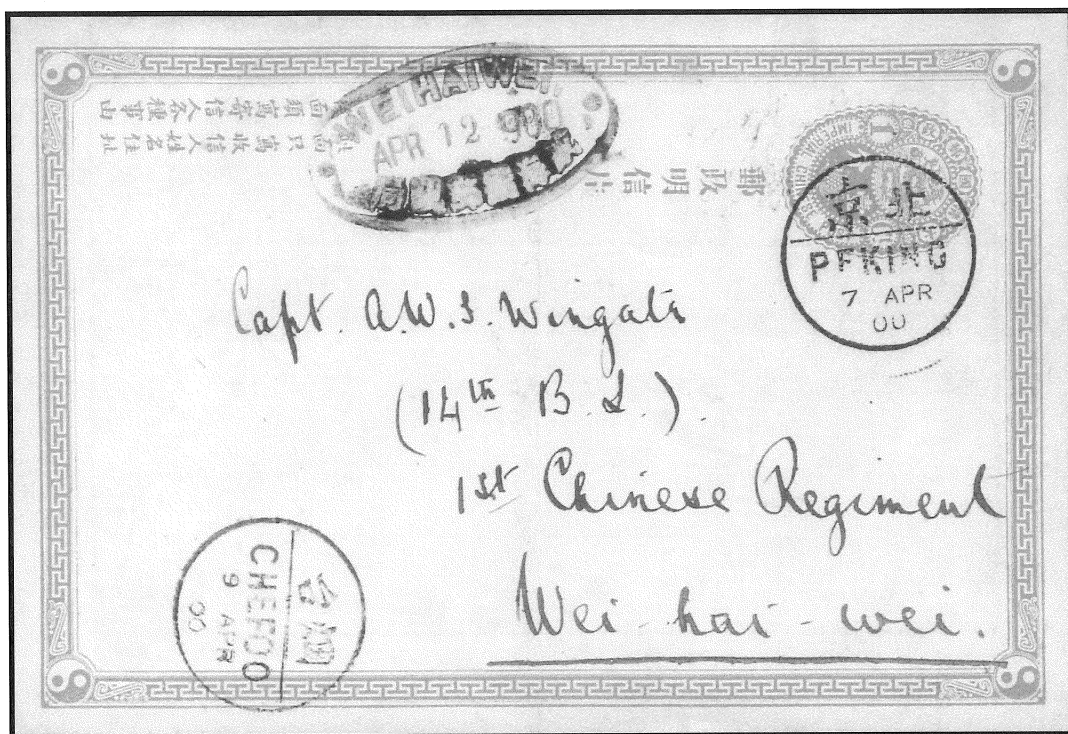 WEIHAIWEI
APR 12 900
郵政明信片
IMPERIAL CHINESE
北京
PEKING
7 APR
00
Capt. A.W.S. Wingate
(14th B.L.).
1st Chinese Regiment
Wei-hai-wei.
CHEFOO
9 APR
00